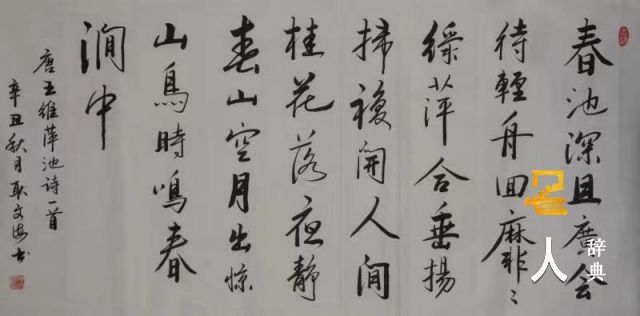 春池深且廣會
待輕舟回靡〻
綠萍合垂揚
掃複開人閒
桂花落夜靜
春山空月出惊
山鳥時鳴春
澗中
唐王維萍池诗一首
辛丑秋月耿文海书
人
辞典